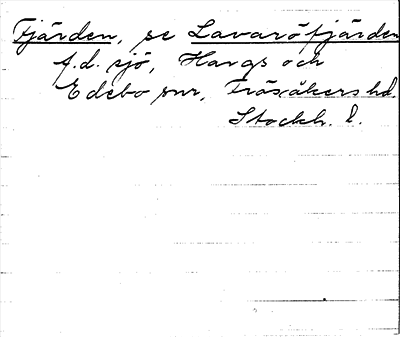 Fjärden, se Lavaröfjärden
f.d. sjö, Hargs och
Edebo snr, Frösåkers hd.
Stockh. l.